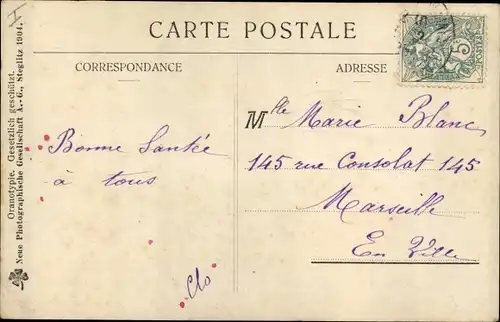 I
CARTE POSTALE
CORRESPONDANCE
ADRESSE
Bonne Santée
à tous
Clo
Mlle Marie Blanc
145 rue Consolat 145
Marseille
En Ville
5
Oranotypie. Gesetzlich geschützt.
Neue Photographische Gesellschaft A.-G., Steglitz 1904.